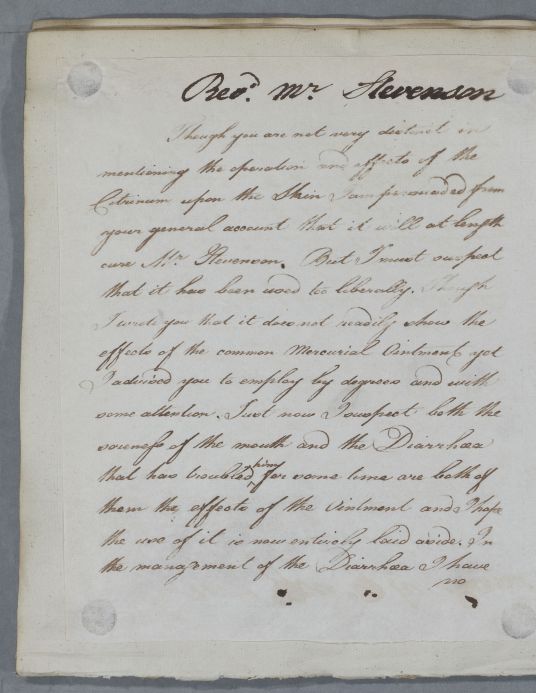 Revd. Mr. Stevenson
Though you are not very distinct in
mentioning the operation and effects of the
Citrinum upon the Skin I am perswaded from
your general account that it will at length
cure Mr. Stevenson. But I must suspect
that it has been used too liberally. Though
I wrote you that it does not readily show the
effects of the common Mercurial Ointment yet
I advised you to employ by degrees and with
some attention. Just now I suspect both the
soreness of the mouth and the Diarrhœa
that has troubled him for some time are both of
them the effects of the Ointment and I hope
the use of it is now entirely laid aside. In
the management of the Diarrhœa I have
no